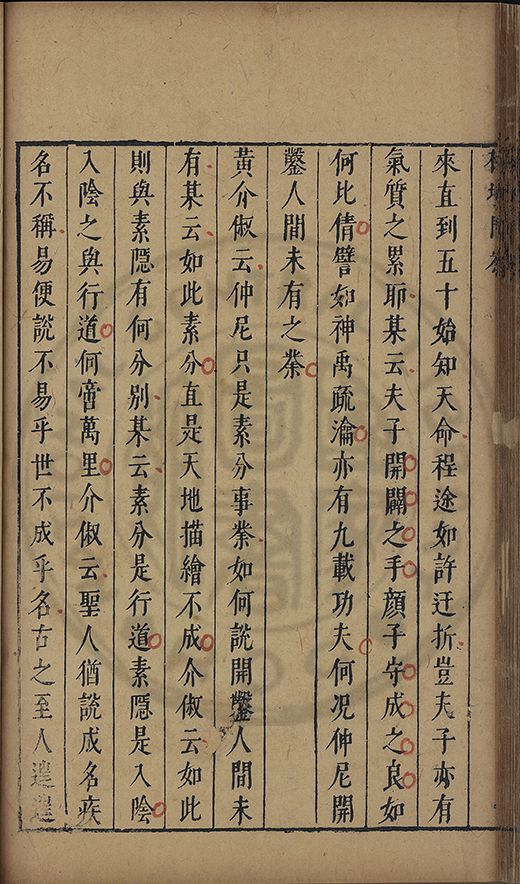 來直到五十始知天命程途如許迂折豈夫子亦有
氣質之累耶某云夫子開闢之手顏子守成之良如
何比倩譬如神禹疏瀹亦有九載功夫何况仲尼開
鑿人間未有之㭍
黃介俶云仲尼只是素分事業如何說開鑿人間未
有某云如此素分直是天地描繪不成介俶云如此
則與素隱有何分別某云素分是行道素隱是入隂
入隂之與行道何啻萬里介俶云聖人猶說成名疾
名不稱易便說不易乎世不成乎名古之至人遑遑